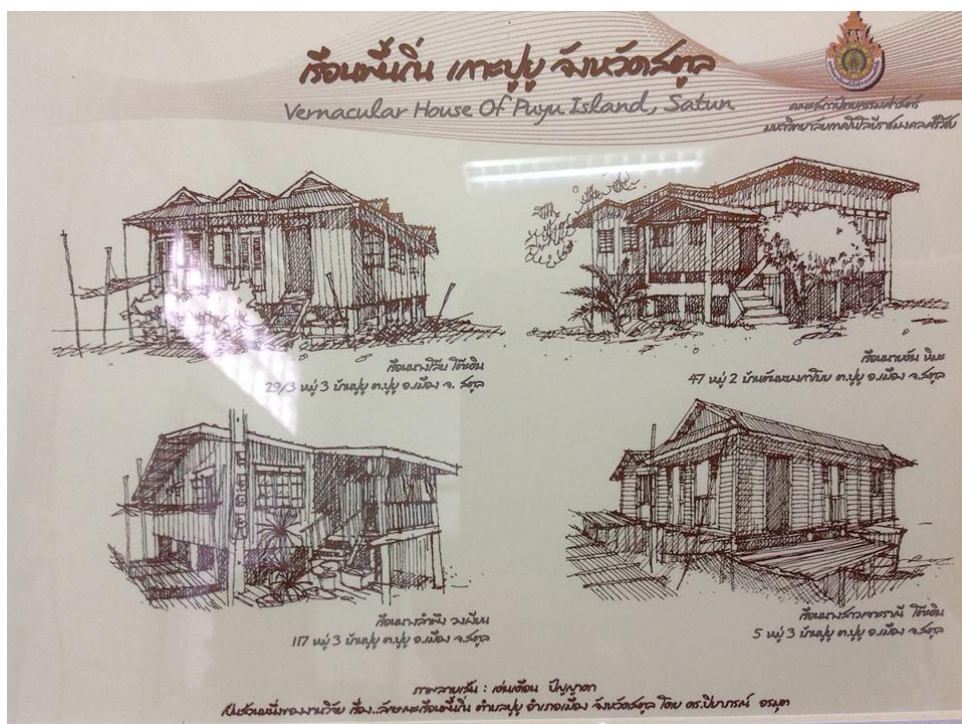 เรือนพื้นถิ่น เกาะปูยู จังหวัดสตูล
Vernacular House Of Puyu Island, Satun
คณะสถาปัตยกรรมศาสตร์
มหาวิทยาลัยเทคโนโลยีราชมงคลศรีวิชัย
โต๊ะดิน
29/3 หมู่ 3 บ้านปูยู ต.ปูยู อ.เมือง จ. สตูล
47 หมู่ 2 บ้านตันหยงกาโบย ต.ปูยู อ.เมือง จ.สตูล
เรือนนางลำพึง
117 หมู่ 3 บ้านปูยู ต.ปูยู อ.เมือง จ.สตูล
เรือนนางสาวเจะราณี โต๊ะดิน
5 หมู่ 3 บ้านปูยู ต.ปูยู อ.เมือง จ.สตูล
ภาพลายเส้น : เด่นเดือน ปัญญาดา
เป็นส่วนหนึ่งของงานวิจัย เรื่อง..ลักษณะเรือนพื้นถิ่น ตำบลปูยู อำเภอเมือง จังหวัดสตูล โดย ดร.ปิยาภรณ์ อรมุต